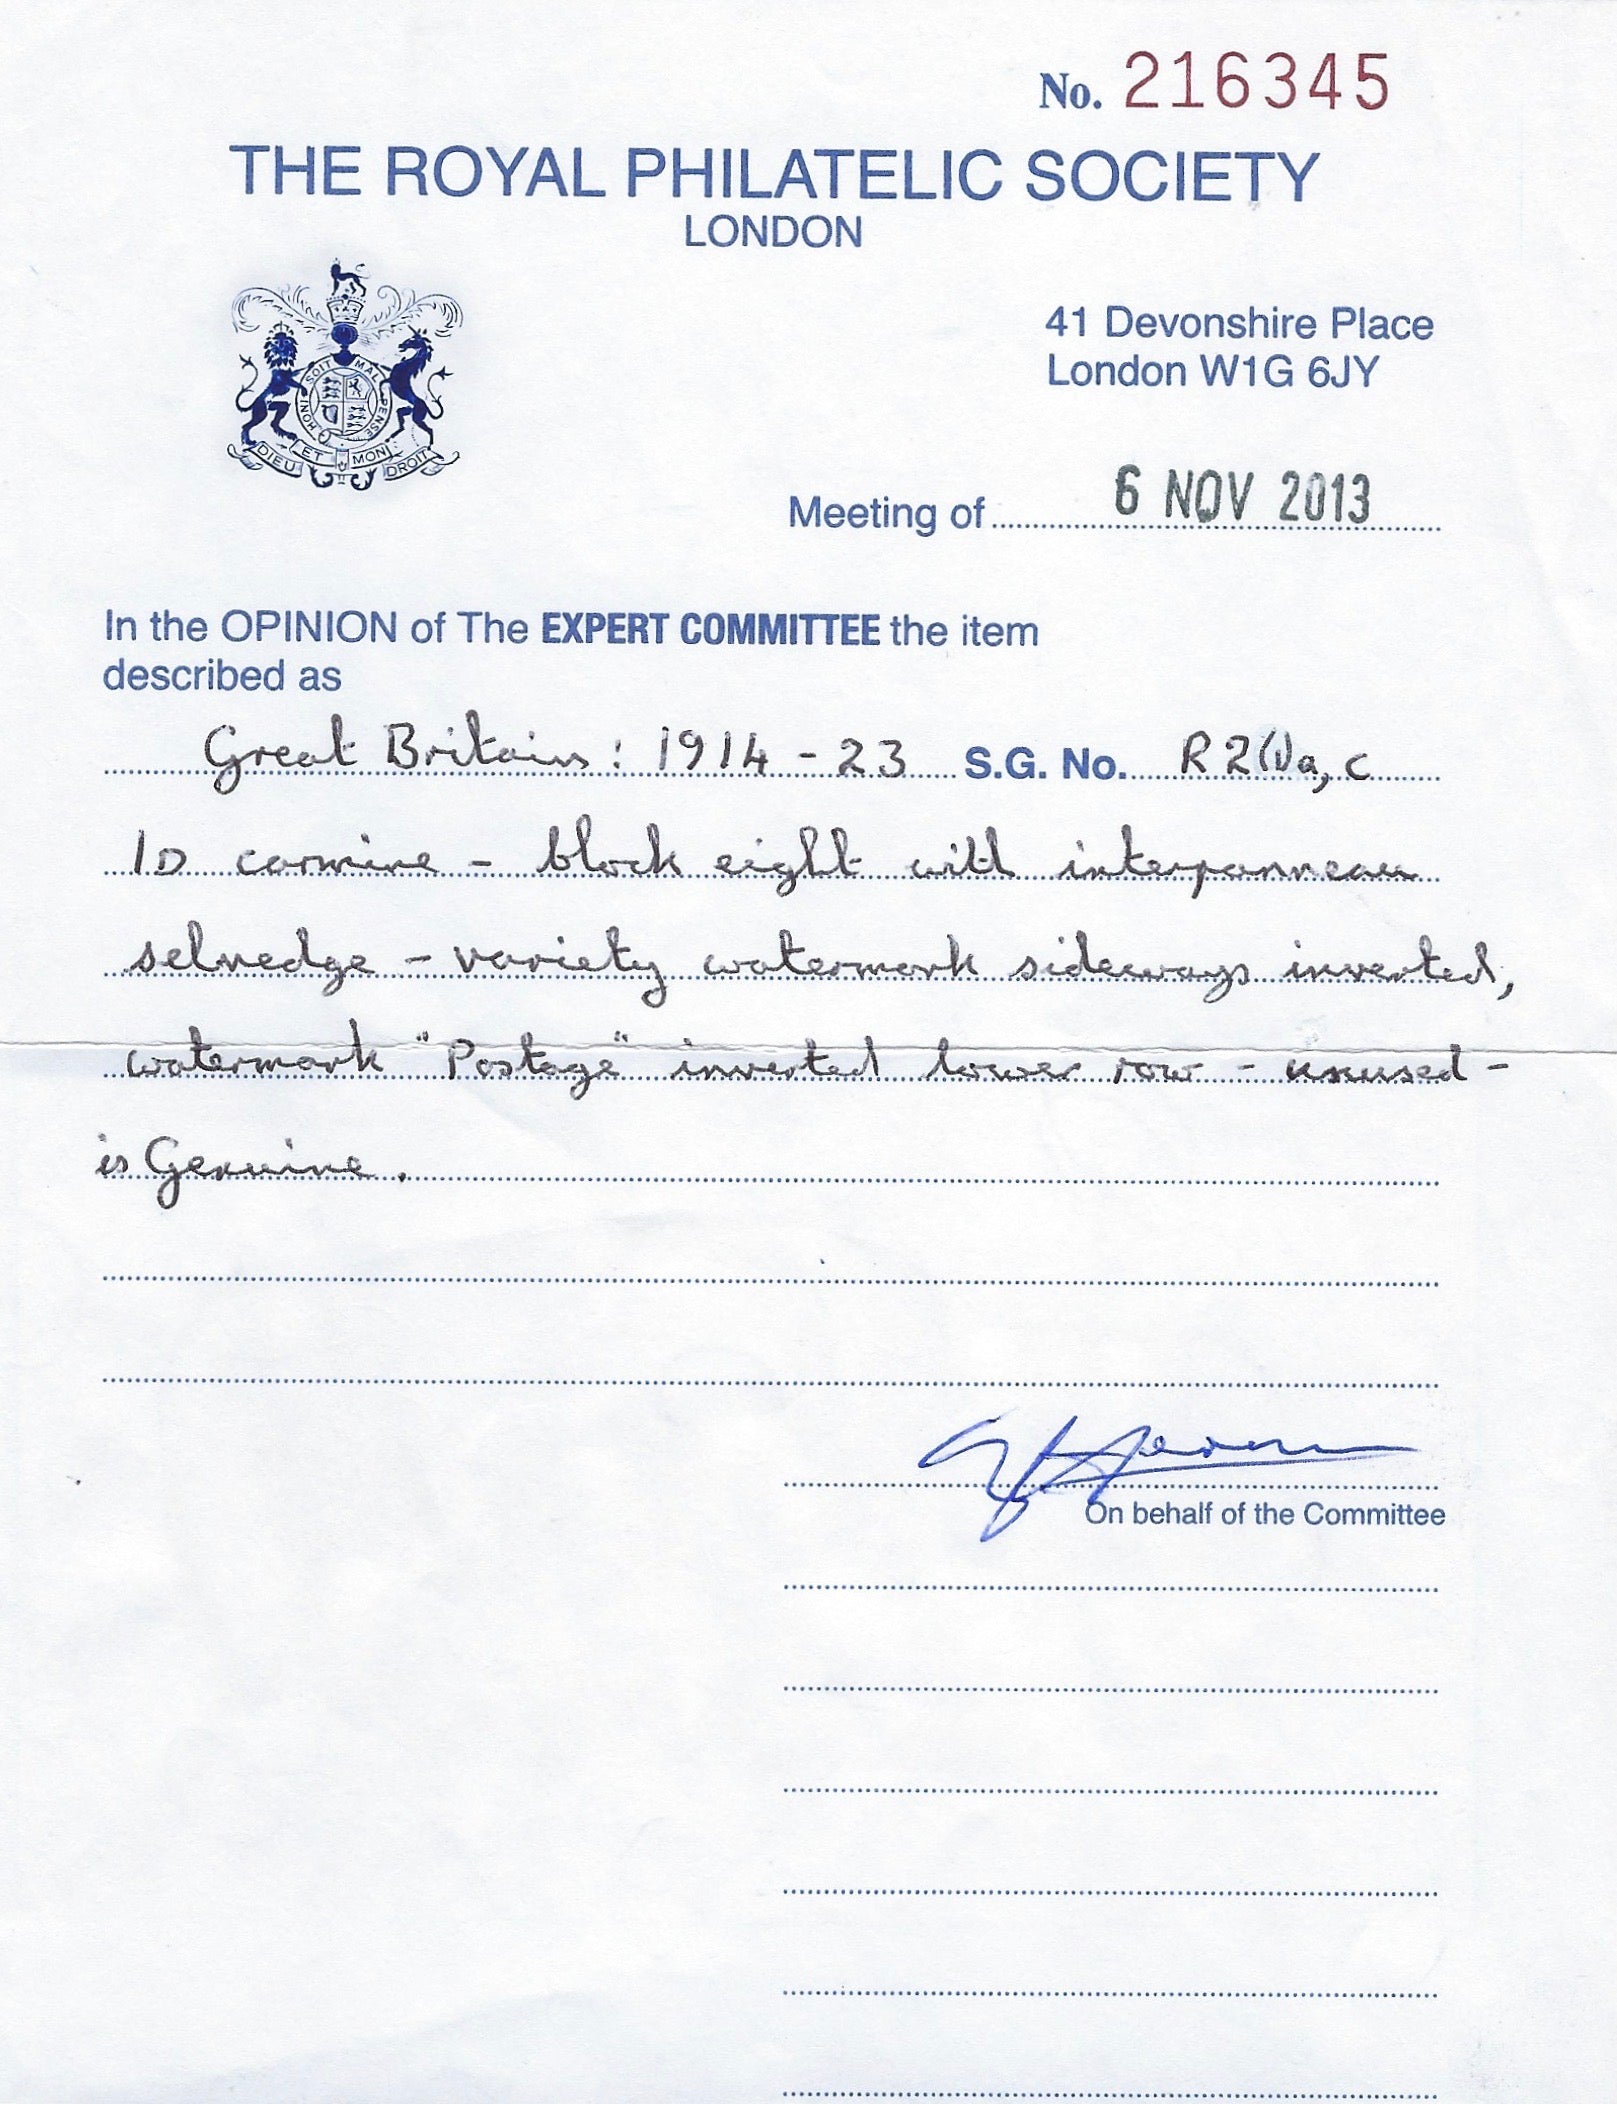 No. 216345
THE ROYAL PHILATELIC SOCIETY
LONDON
HONI SOIT MAL PENSE
DIEU ET MON DROIT
41 Devonshire Place
London W1G 6JY
Meeting of 6 NOV 2013
In the OPINION of The EXPERT COMMITTEE the item
described as
Great Britain: 1914-23 S.G. No. R2(1)a, c
1D carmine - block eight with interpanneau
selvedge - variety watermark sideways inverted,
watermark "Postage" inverted lower row - unused -
is Genuine.
On behalf of the Committee